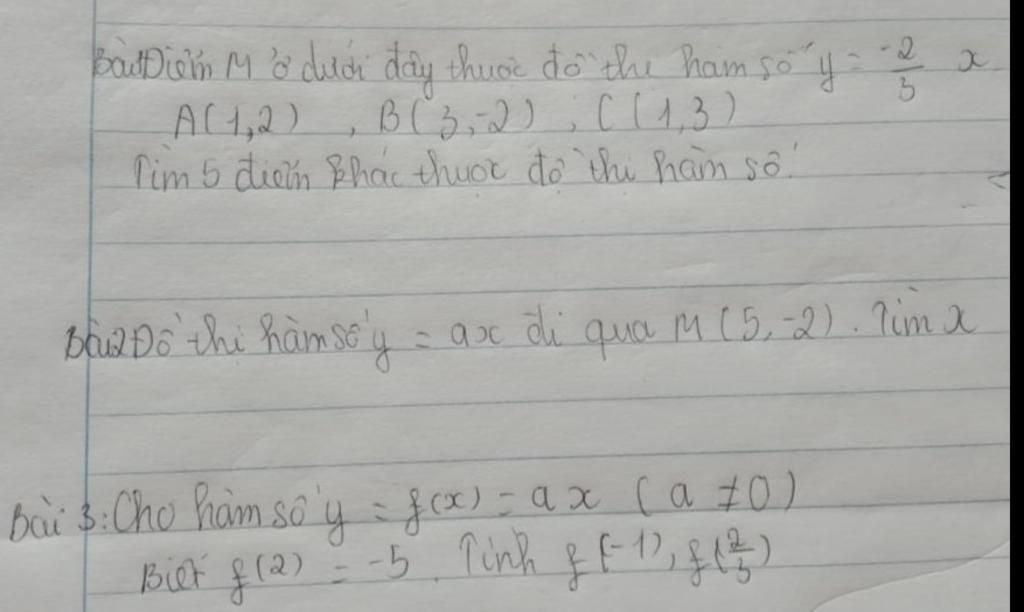 Bài1Điểm M ở dưới đây thuộc đồ thị hàm số y = -2/3 x
A(1,2) , B(3,-2) , C(1,3)
Tìm 5 điểm khác thuộc đồ thị hàm số.
Bài2Đồ thị hàm số y = ax đi qua M(5,-2). Tìm x
Bài 3: Cho hàm số y = f(x) = ax (a ≠ 0)
Biết f(2) = -5. Tính f(-1), f(2/3)